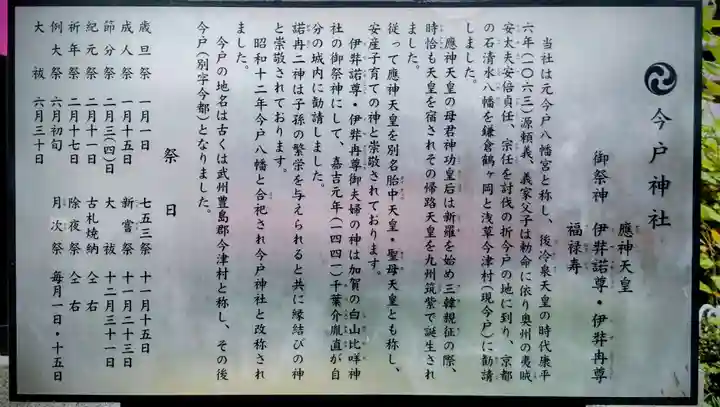 今戸神社
御祭神
應神天皇
伊弉諾尊・伊弉冉尊
福禄寿
当社は元今戸八幡宮と称し、後冷泉天皇の時代康平
六年(一〇六三)源頼義、義家父子は勅命に依り奥州の夷賊
安太夫安倍貞任、宗任を討伐の折今戸の地に到り、京都
の石清水八幡を鎌倉鶴ヶ岡と浅草今津村(現今戸)に勧請
しました。
應神天皇の母君神功皇后は新羅を始め三韓親征の際、
時恰も天皇を宿されその帰路天皇を九州筑紫で誕生され
従って應神天皇を別名胎中天皇・聖母天皇とも称し、
安産子育ての神と崇敬されております。
伊弉諾尊・伊弉冉尊御夫婦の神は加賀の白山比咩神
社の御祭神にして、嘉吉元年(一四四一)千葉介胤直が自
分の城内に勧請しました。
諾冉二神は子孫の繁栄を与えられると共に縁結びの神
と崇敬されております。
昭和十二年今戸八幡と合祀され今戸神社と改称され
ました。
今戸の地名は古くは武州豊島郡今津村と称し、その後
今戸(別字今都)となりました。
祭日
歳旦祭 一月一日
成人祭 一月十五日
節分祭 二月三(四)日
紀元祭 二月十一日
祈年祭 二月十七日
例大祭 六月初旬
大祓 六月三十日
七五三祭 十一月十五日
新嘗祭 十一月二十三日
大祓 十二月三十一日
古札焼納 仝右
除夜祭 仝右
月次祭 毎月一日・十五日